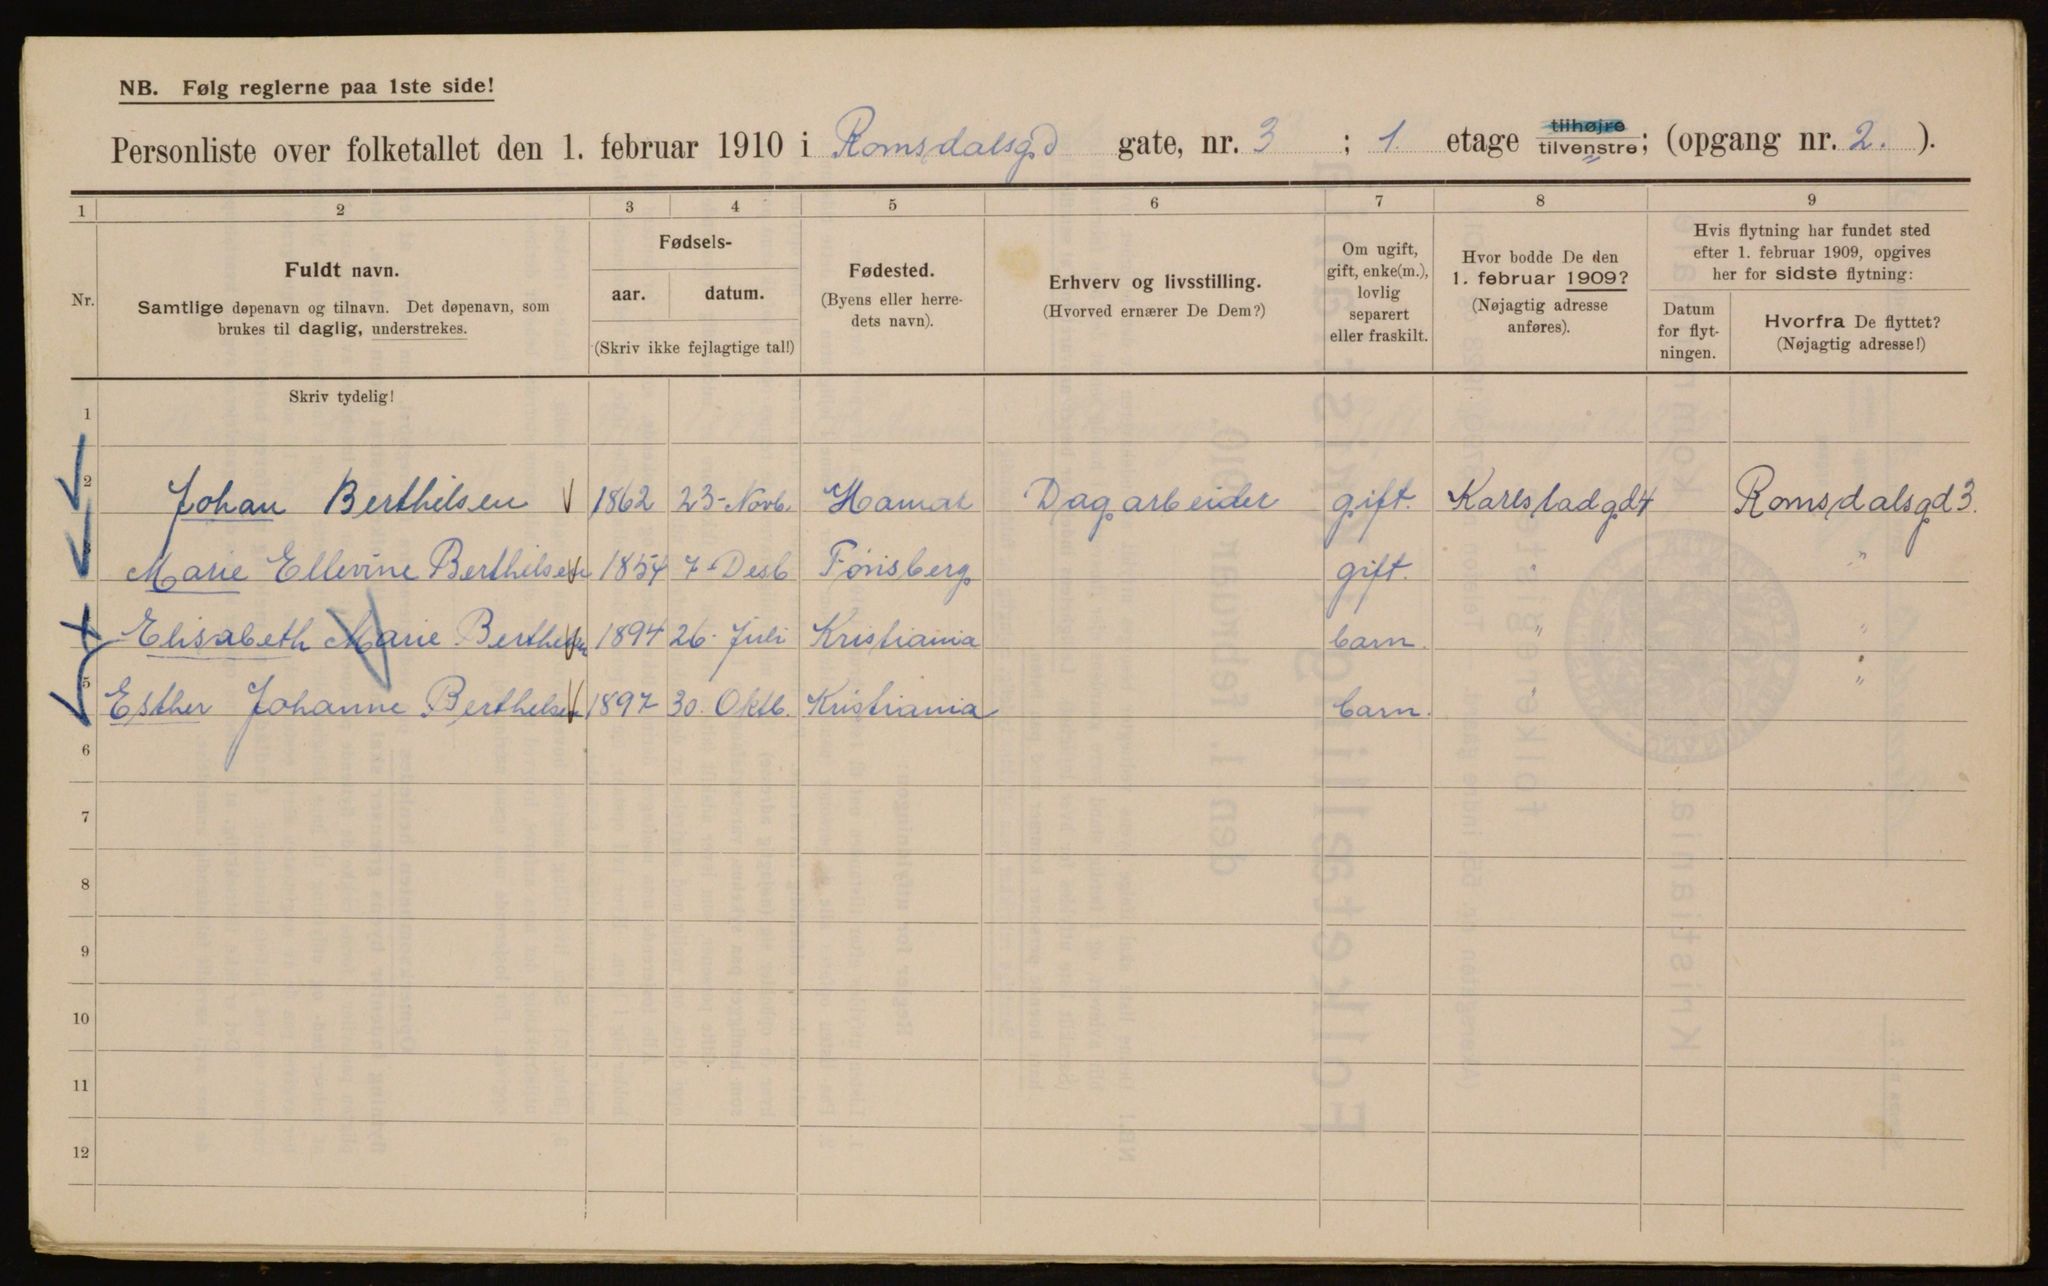 NB. Følg reglerne paa 1ste side!
Personliste over folketallet den 1. februar 1910 i Romsdalsgd gate, nr. 3 ; 1 etage tilhøjre tilvenstre; (opgang nr. 2. ).
1 2 3 4 5 6 7 8 9
Nr.
Fuldt navn.
Samtlige døpenavn og tilnavn. Det døpenavn, som
brukes til daglig, understrekes.
Fødsels-
aar. datum.
(Skriv ikke fejlagtige tal!)
Fødested.
(Byens eller herre-
dets navn).
Erhverv og livsstilling.
(Hvorved ernærer De Dem?)
Om ugift,
gift, enke(m.),
lovlig
separert
eller fraskilt.
Hvor bodde De den
1. februar 1909?
(Nøjagtig adresse
anføres).
Hvis flytning har fundet sted
efter 1. februar 1909, opgives
her for sidste flytning:
Datum
for flyt-
ningen.
Hvorfra De flyttet?
(Nøjagtig adresse!)
Skriv tydelig!
1
2 Johan Berthelsen 1862 23-Novb. Hamar Dagarbeider gift. Karlstadgd4 Romsdalsgd3.
Marie Ellevine Berthelsen 1854 7-Desb Tønsberg gift. " "
Elisabeth Marie Berthelsen 1894 26. Juli Kristiania barn. " "
5 Esther Johanne Berthelsen 1897 30. Oktb. Kristiania barn. " "
6
7
8
9
10
11
12